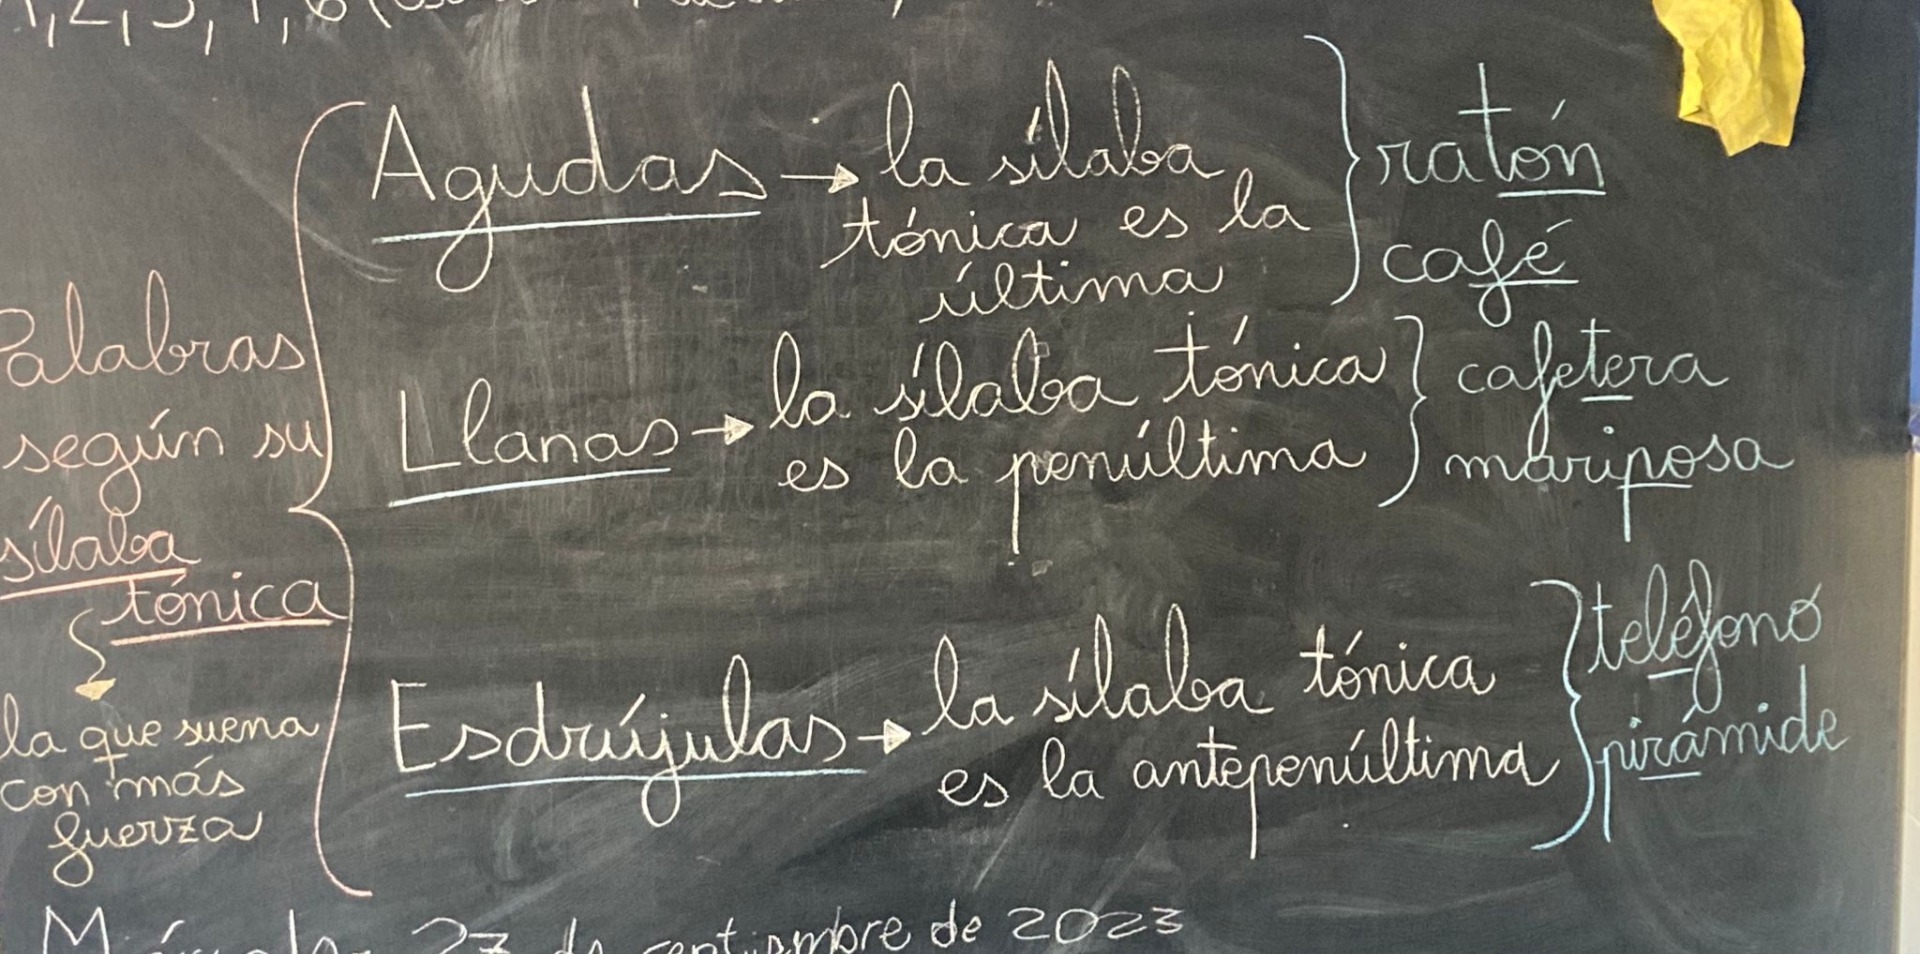 1, 2, 3, 4, 6
Palabras
según su
sílaba
tónica
la que suena
con más
fuerza
Agudas → la sílaba
tónica es la
última
ratón
café
Llanas → la sílaba tónica
es la penúltima
cafetera
mariposa
Esdrújulas → la sílaba tónica
es la antepenúltima
teléfono
pirámide
Miércoles 27 de septiembre de 2023